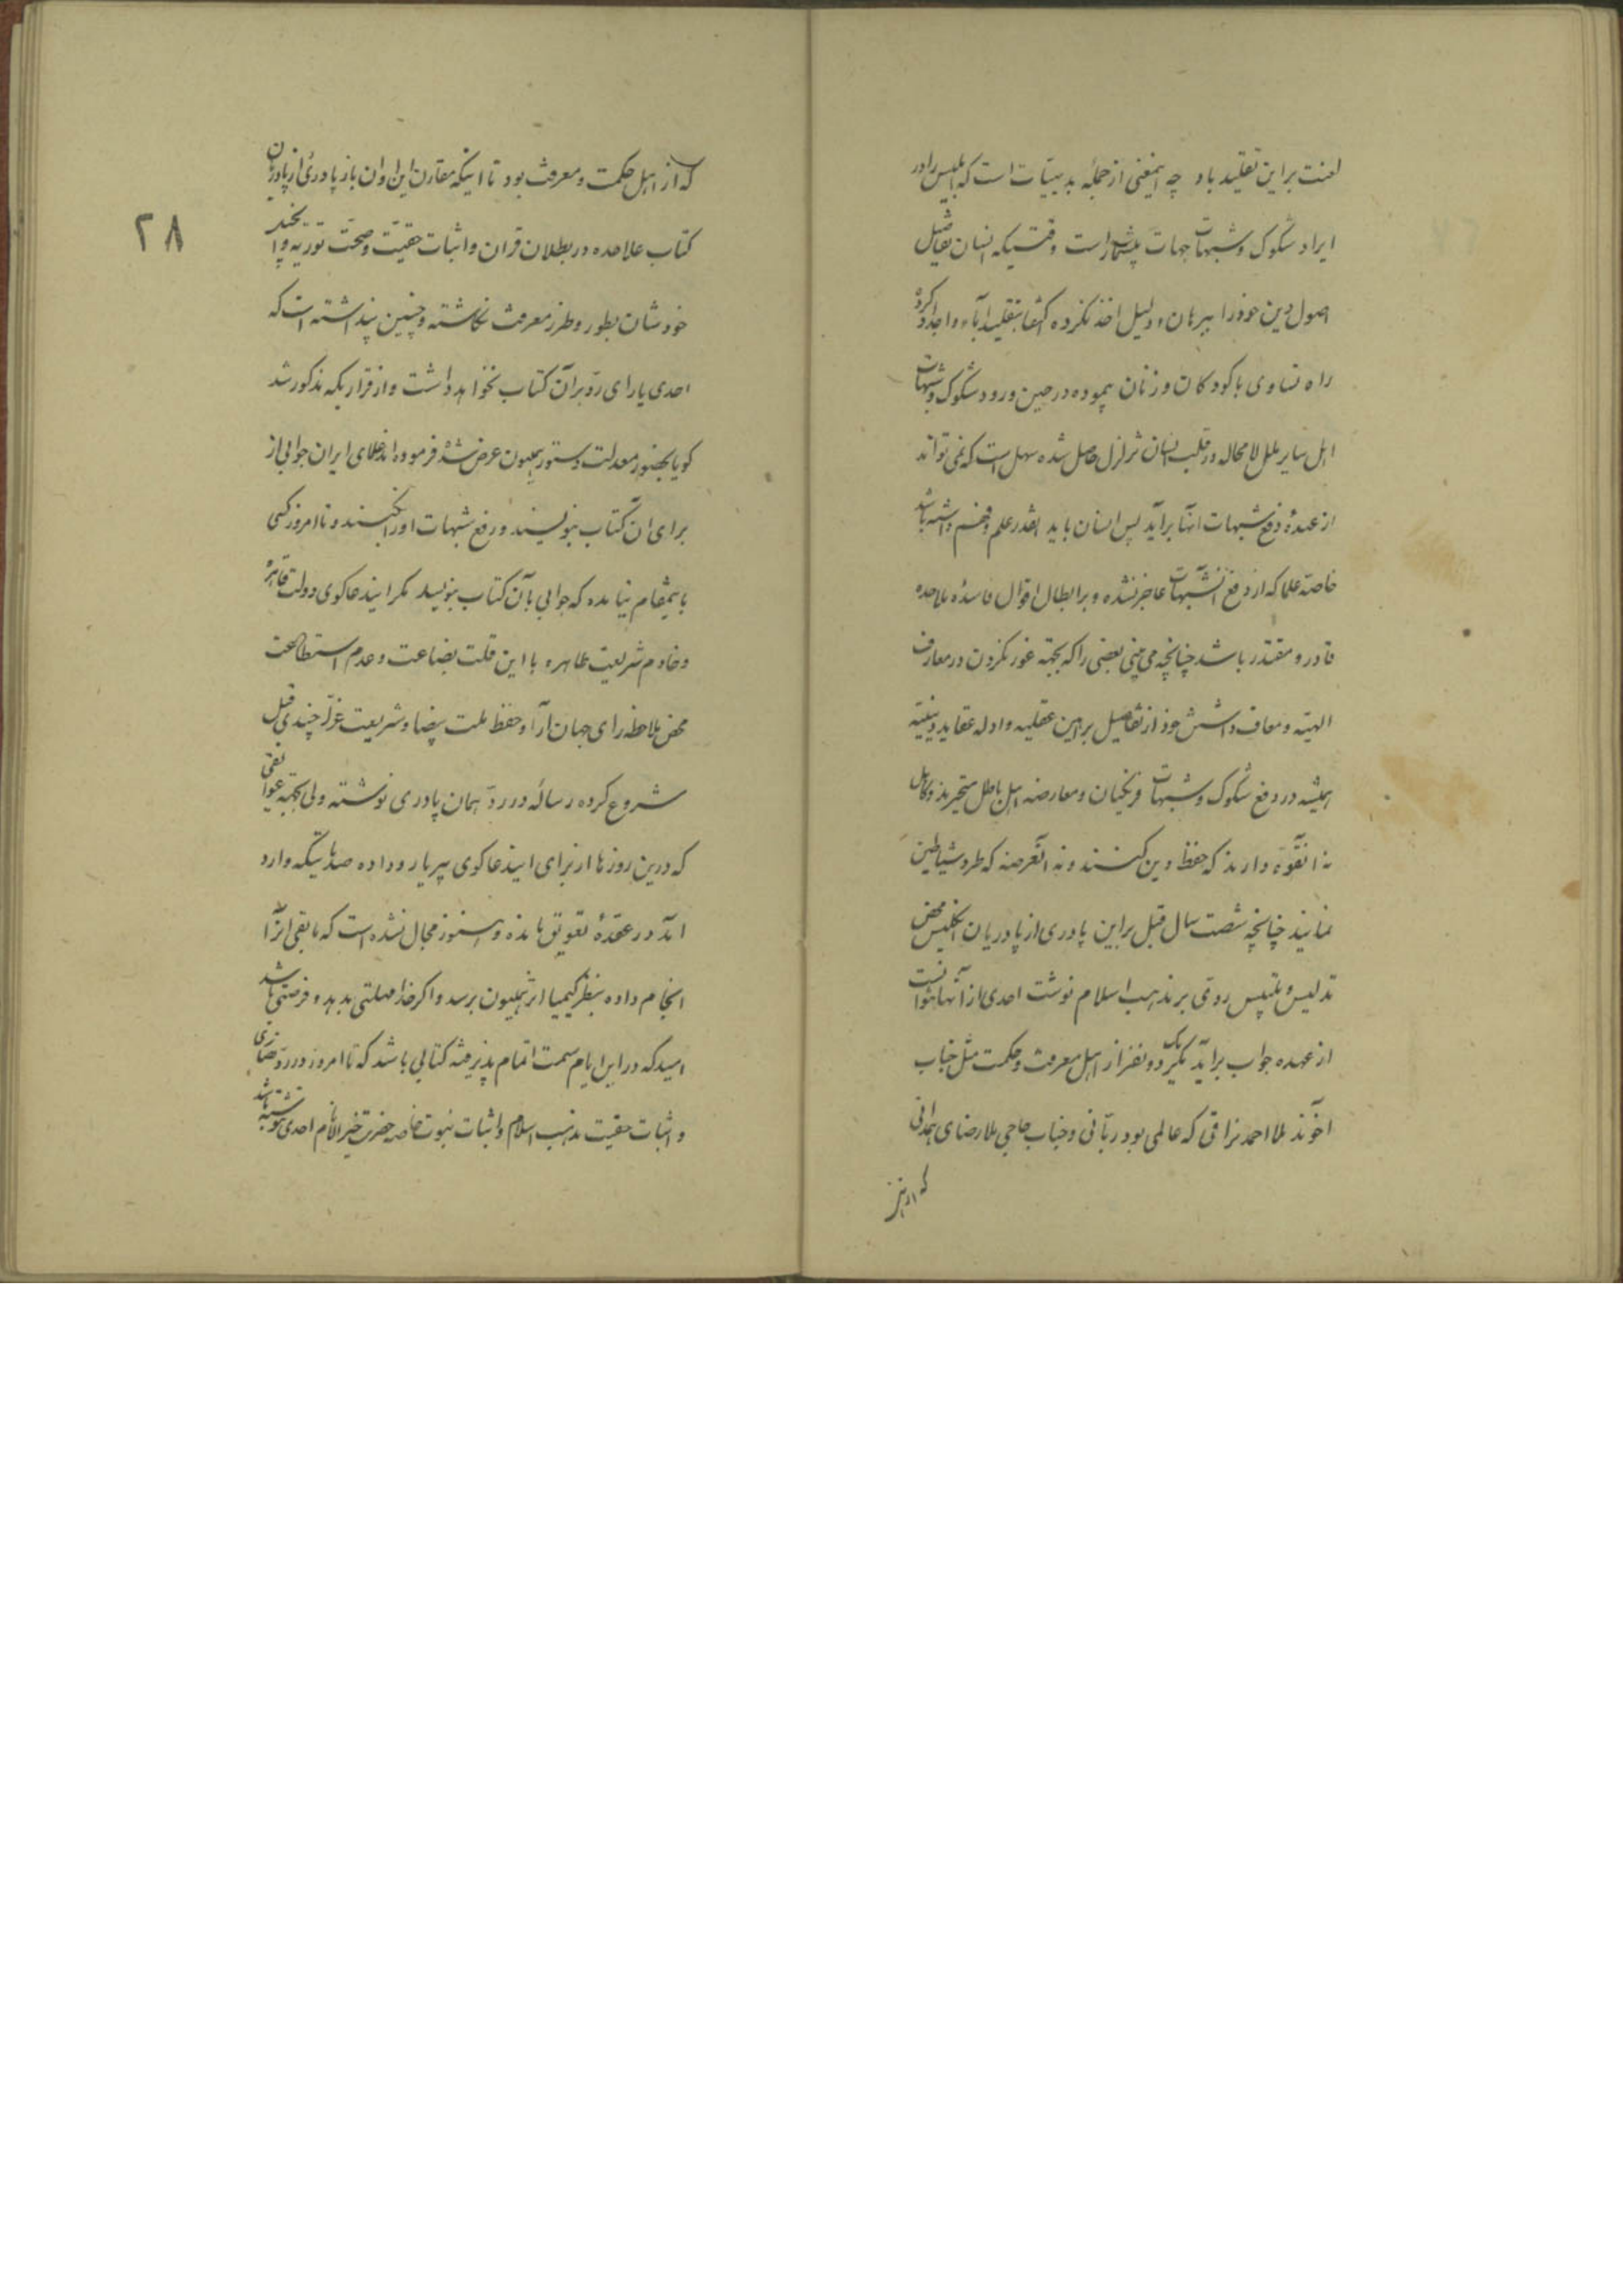 لعنت براین تقلید باد چه اینمعنی از جمله بدیهیات است که ابلیس را در
ایراد شکوک و شبهات جهات بیشمار است وقتیکه انسان بتفاصیل
اصول دین خود را ببرهان و دلیل اخذ نکرده اکتفا بتقلید آباء و اجداد کرده
راه تساوی با کودکان و زنان پیموده در حین ورود شکوک و شبهات
اهل سایر ملل لامحاله در قلب انسان تزلزل حاصل شده سهل است که نمی تواند
از عهدهٔ دفع شبهات آنها برآید پس انسان باید آنقدر علم و فهم داشته باشد
خاصه علما که از دفع آنشبهات عاجز نشده و بر ابطال اقوال فاسدهٔ ملاحده
قادر و مقتدر باشد چنانچه می بینی بعضی را که بجهة غور نکردن در معارف
الهیّه و معاف داشتن خود از تفاصیل براهین عقلیه و ادله عقاید دینیّه
همیشه در دفع شکوک و شبهات فرنگیان و معارضه اهل باطل متحیرند و کاهل
نه آنقوّه دارند که حفظ دین کنند و نه آنعرضه که طرد شیاطین
نمایند چنانچه شصت سال قبل براین پادری از پادریان انگلیس محض
تدلیس و تلبیس ردی بر مذهب اسلام نوشت احدی از آنها نتوانست
از عهده جواب برآید مگر یک دو نفر از اهل معرفت و حکمت مثل جناب
آخوند ملا احمد نراقی که عالمی بود ربّانی و جناب حاجی ملا رضای همدانی
که او نیز
که از اهل حکمت و معرفت بود تا اینکه مقارن این اوان باز پادری از پادریان
کتاب علاحده در بطلان قران و اثبات حقیّت و صحّت توریة و انجیل
خودشان بطور و طرز معرفت نگاشته و چنین پنداشته است که
احدی یارای ردّ برآن کتاب نخواهد داشت و از قراریکه مذکور شد
گویا بحضور معدلت دستور همیون عرض شده فرموده اند علمای ایران جوابی از
برای آن کتاب بنویسند و رفع شبهات او را بکنند و تا امروز کسی
باینمقام نیامده که جوابی بآن کتاب بنویسد مگر ایندعاگوی دولت قاهره
و خادم شریعت طاهره با این قلت بضاعت و عدم استطاعت
محض ملاحظه رای جهان آرا و حفظ ملت بیضا و شریعت غرّا چندی قبل
شروع کرده رسالهٔ در ردّ همان پادری نوشته ولی بجهة عوایقی
که درین روزها از برای ایندعاگوی بیریا رو داده صدماتیکه وارد
آمد در عقدهٔ تعویق مانده و هنوز مجال نشده است که مابقی آنرا
انجام داده بنظر کیمیا اثر همیون برسد و اگر خدا مهلتی بدهد و فرصتی باشد
امید که در این ایام سمت اتمام پذیرفته کتابی باشد که تا امروز در ردّ نصاری
و اثبات حقیّت مذهب اسلام و اثبات نبوت خاصه حضرت خیر الانام احدی ننوشته باشد
۲۸